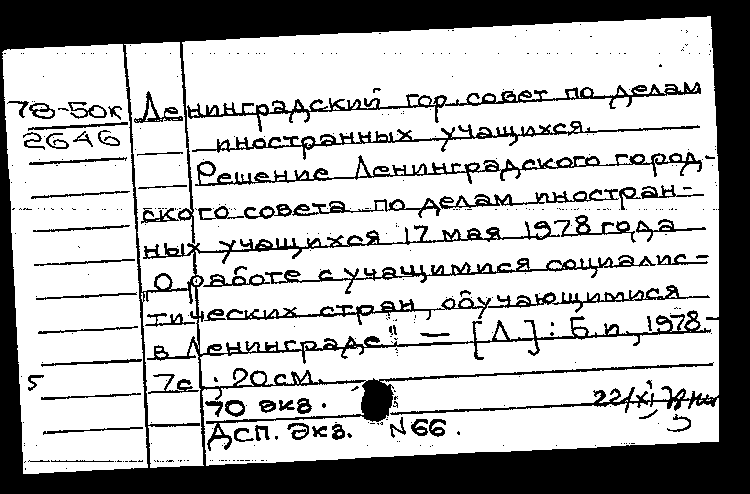 78-50к Ленинградский гор. совет по делам
2646 иностранных учащихся.
Решение Ленинградского город-
ского совета по делам иностран-
ных учащихся 17 мая 1978 года
"О работе с учащимися социалис-
тических стран, обучающимися
в Ленинграде" — [Л.]: Б.и., 1978.-
5 7с.; 20 см.
70 экз. 22/XI
ДСП. Экз. N 66.